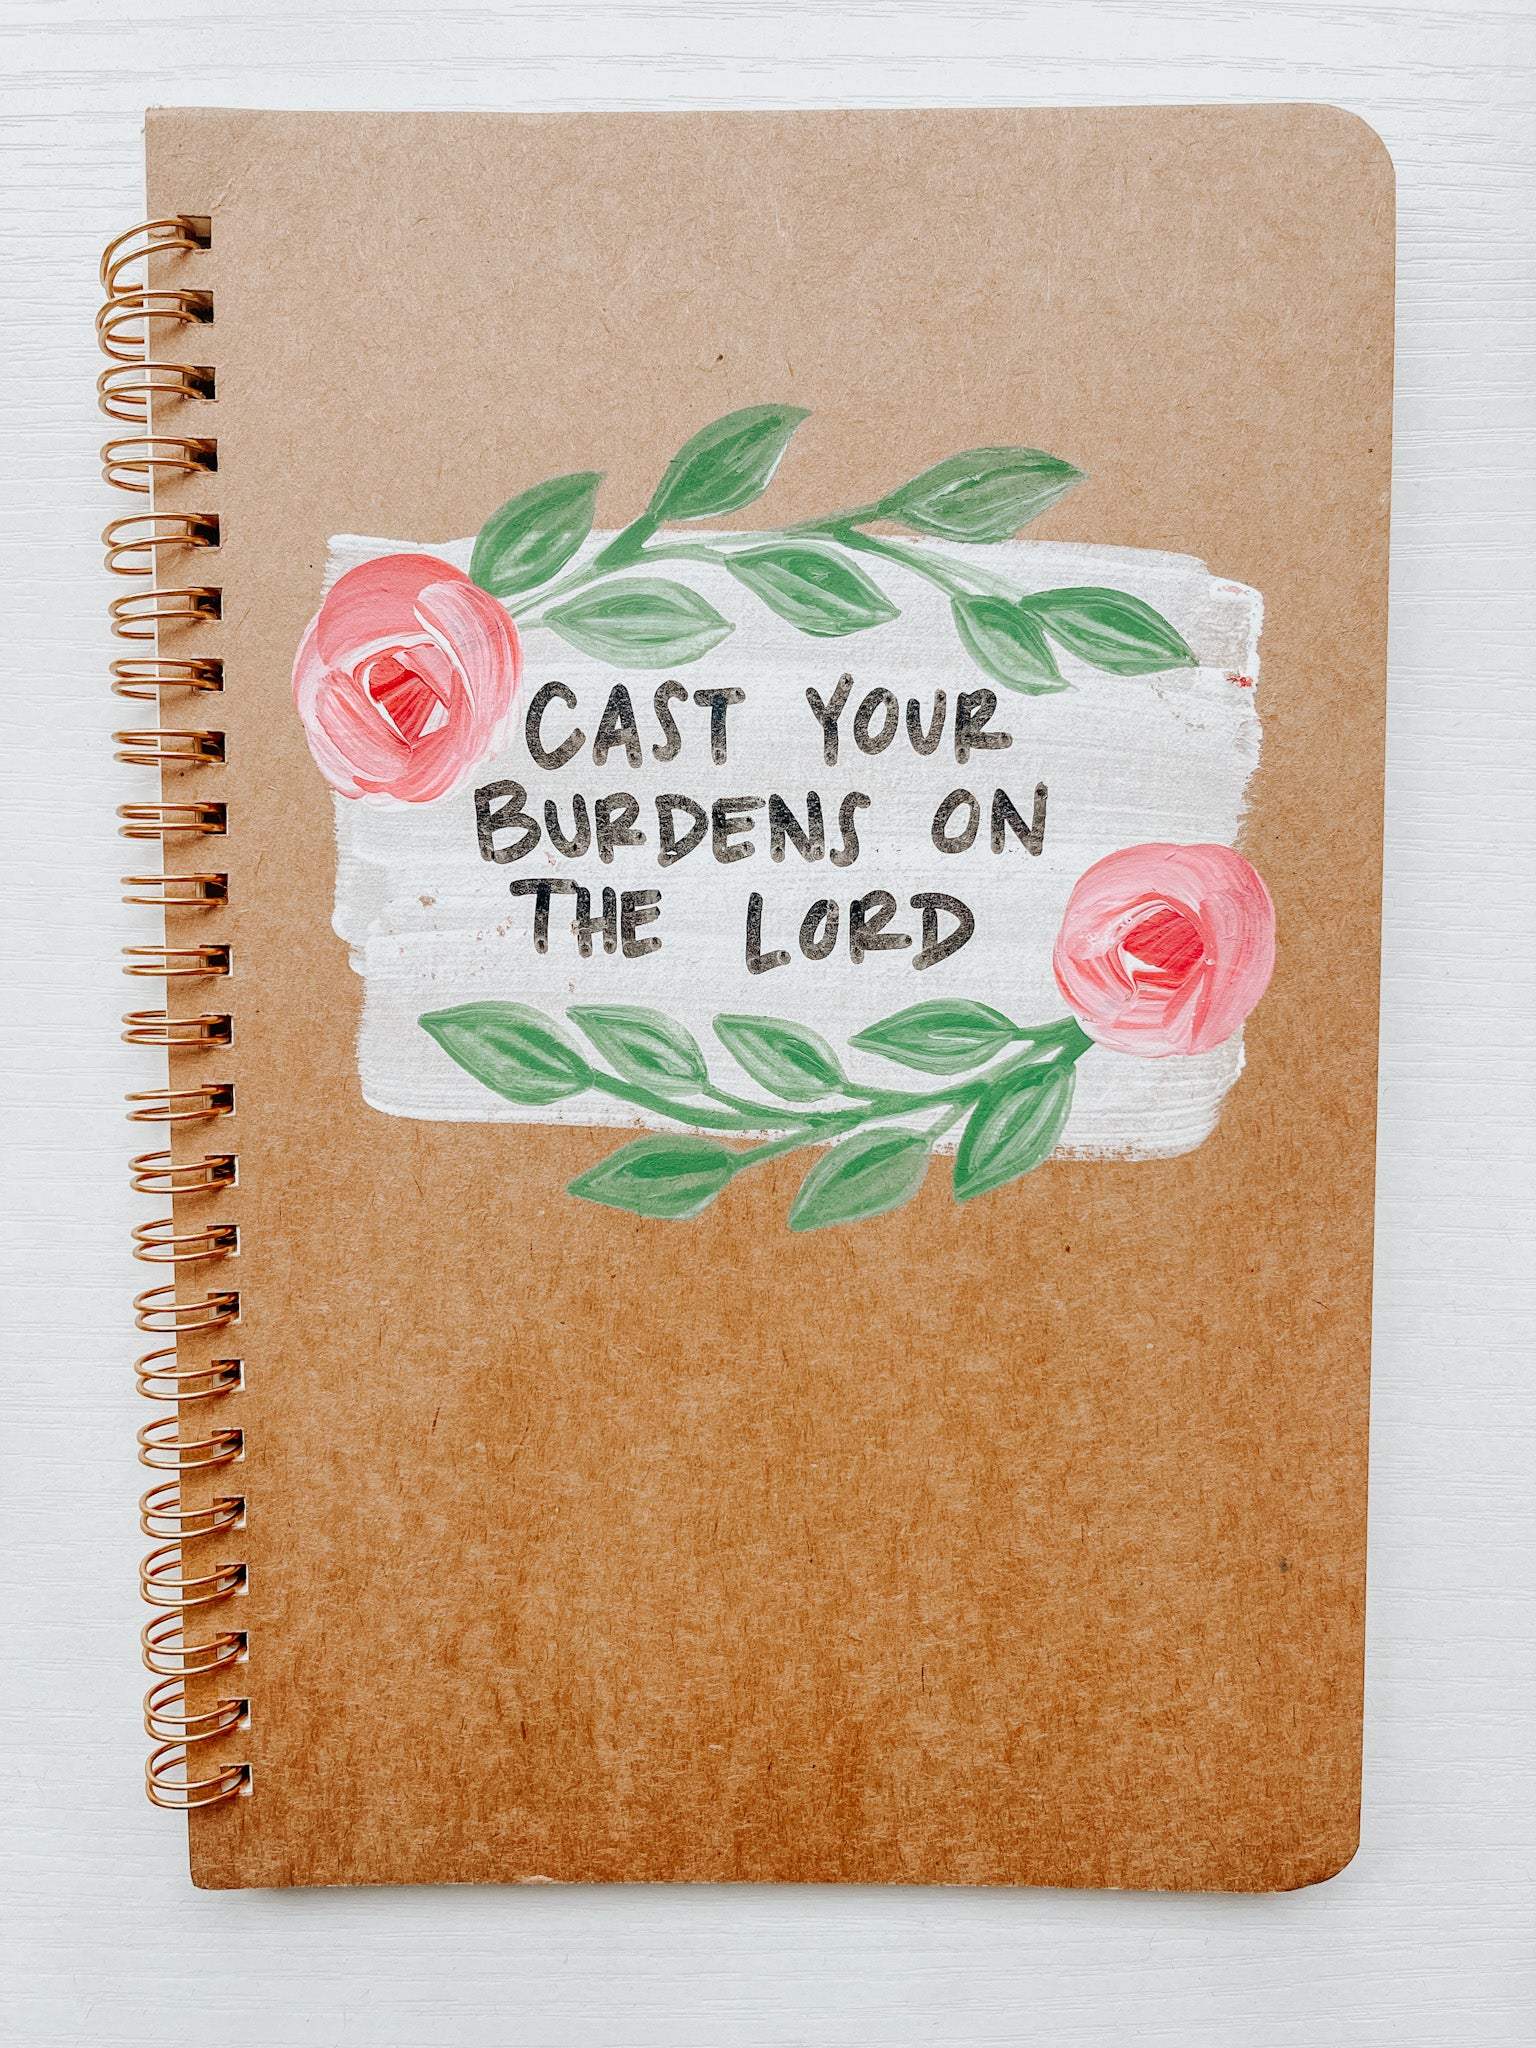 CAST YOUR
BURDENS ON
THE LORD